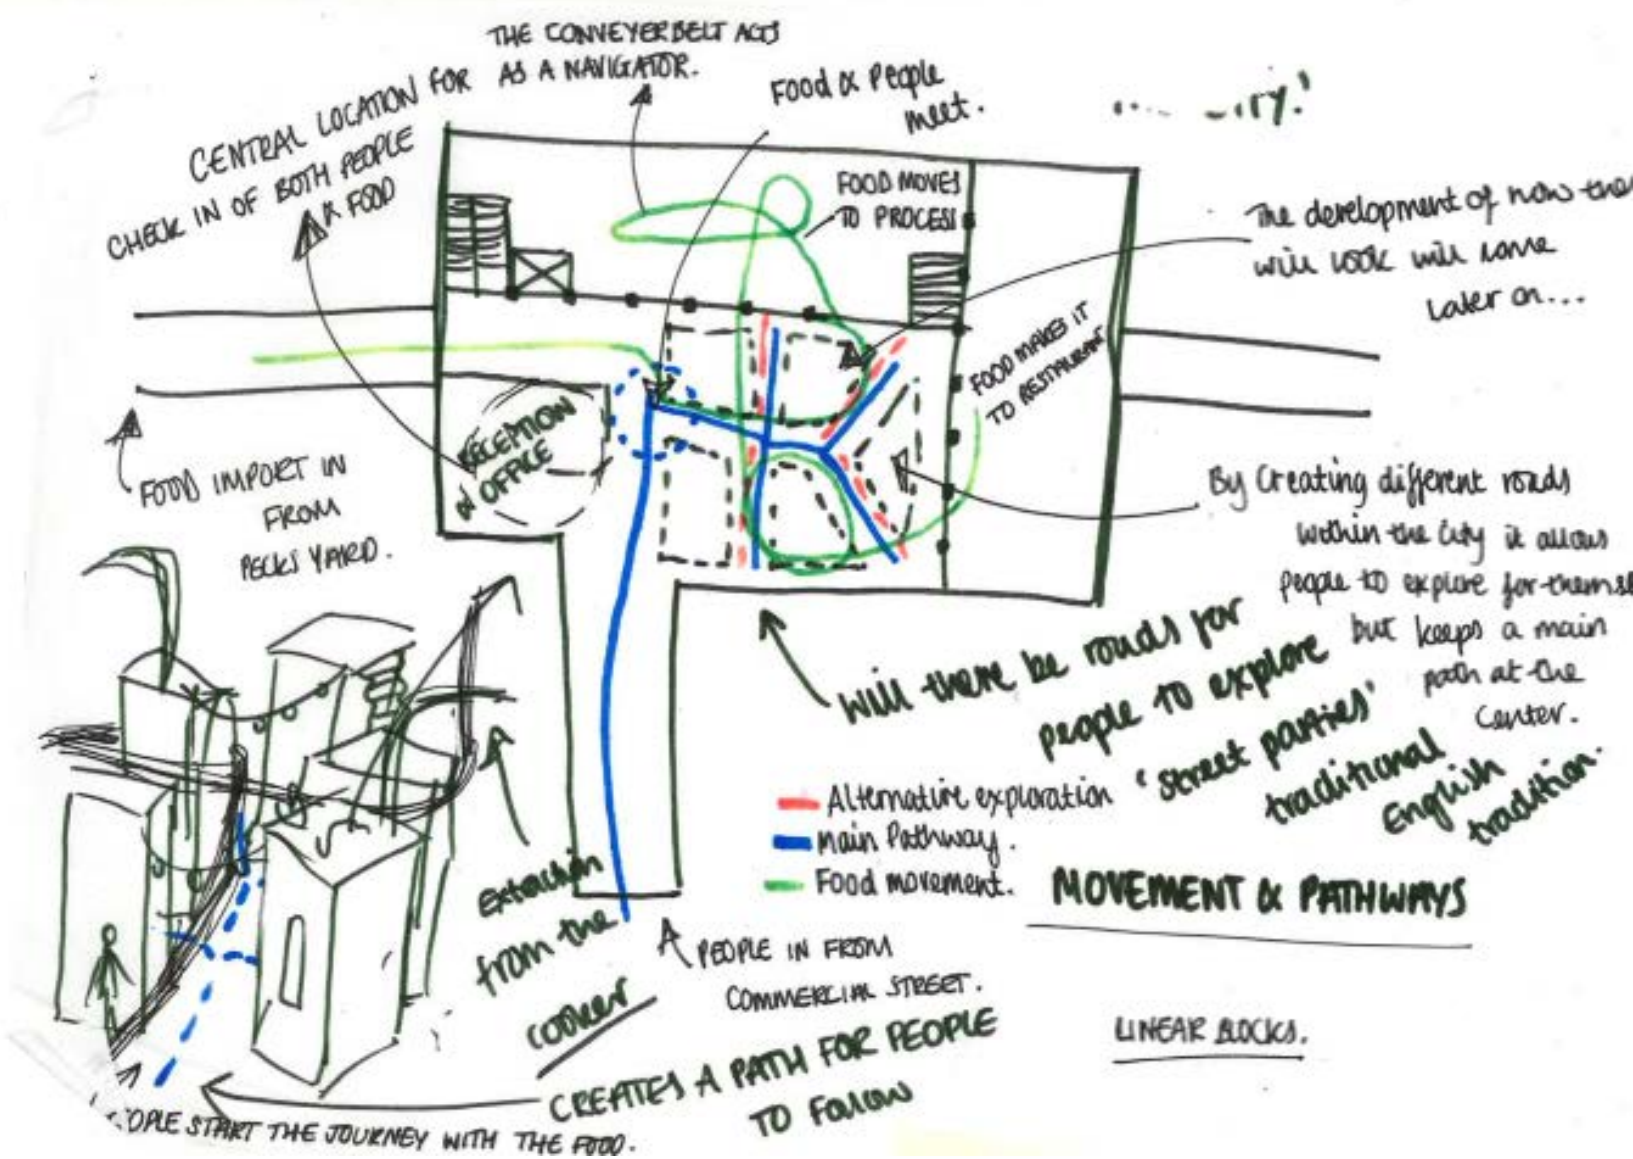 THE CONVEYERBELT ACTS
AS A NAVIGATOR.
CENTRAL LOCATION FOR
CHECK IN OF BOTH PEOPLE
& FOOD
Food & People
meet.
FOOD MOVES
TO PROCESS
The development of how
will look will come
later on...
FOOD MAKES IT
TO RESTAURANT
RECEPTION
OFFICE
FOOD IMPORT IN
FROM
PECKS YARD.
By Creating different roads
within the City it allows
people to explore for
but keeps a main
path at the
Center.
Will there be roads for
people to explore
'street parties'
traditional
English
tradition.
Alternative exploration
Main Pathway.
Food movement.
MOVEMENT & PATHWAYS
extraction
from the
cooker
PEOPLE IN FROM
COMMERCIAL STREET.
LINEAR BLOCKS.
CREATES A PATH FOR PEOPLE
TO Follow
START THE JOURNEY WITH THE FOOD.